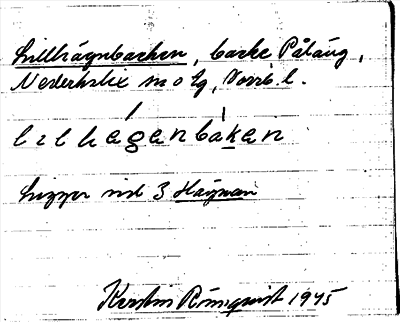 Lillhägnbacken, backe Påläng,
Nederkalix sn o tg, Norrb. l.
lılhägenbaken
Ligger vid 3 Hägnan
Kerstin Rönnqvist 1945